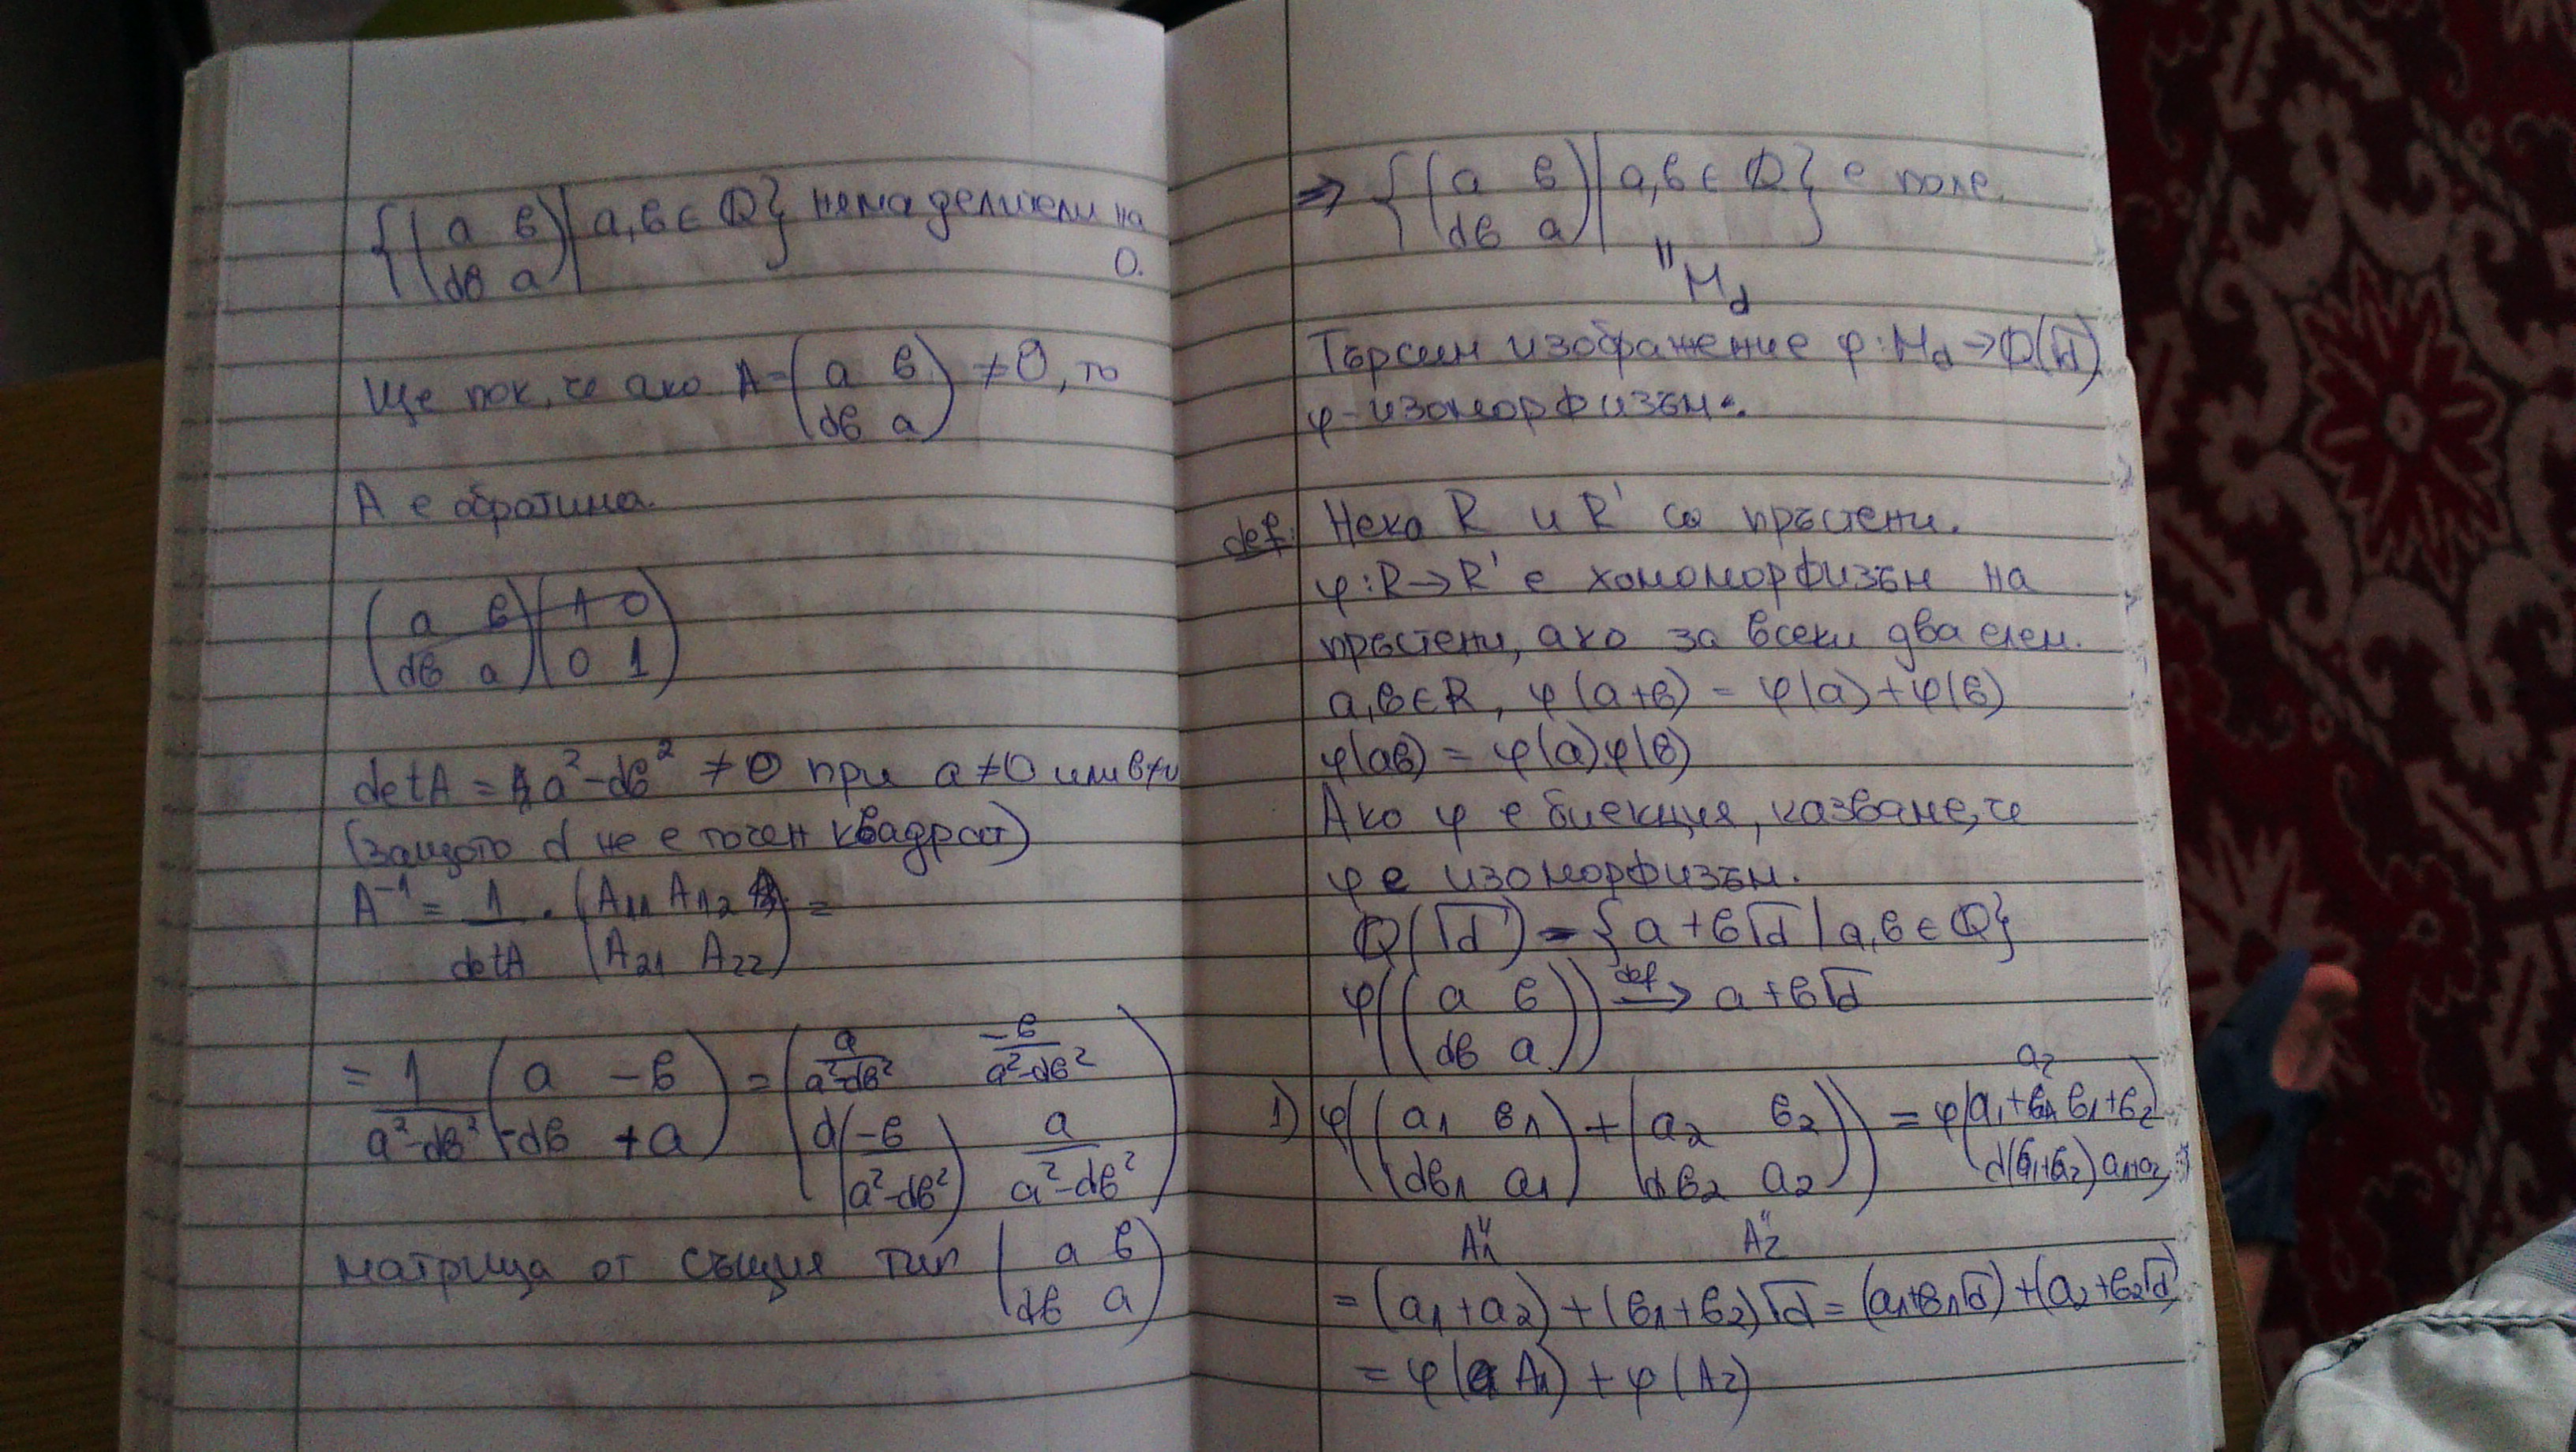 {(a в
dв a) | a,в ∈ Q} няма делители на
0.
Ще пок, че ако A = (a в
dв a) ≠ 0, то
A е обратима.
(a в | 1 0
dв a | 0 1)
detA = a² - dв² ≠ 0 при a ≠ 0 или в ≠ 0
(защото d не е точен квадрат)
A⁻¹ = 1/detA . (A₁₁ A₁₂
A₂₁ A₂₂) =
= 1/(a²-dв²) (a -в
-dв +a) = (a/(a²-dв²) -в/(a²-dв²)
d(-в/(a²-dв²)) a/(a²-dв²))
матрица от същия тип (a в
dв a)
⇒ {(a в
dв a) | a,в ∈ Q} е поле.
"
M_d
Търсим изображение φ: M_d → Q(√d)
φ - изоморфизъм.
def: Нека R и R' са пръстени.
φ: R → R' е хомоморфизъм на
пръстени, ако за всеки два елем.
a,в ∈ R, φ(a+в) = φ(a)+φ(в)
φ(aв) = φ(a)φ(в)
Ако φ е биекция, казваме, че
φ е изоморфизъм.
Q(√d) = {a+в√d | a,в ∈ Q}
φ((a в
dв a)) def→ a+в√d
1) φ((a₁ в₁
dв₁ a₁) + (a₂ в₂
dв₂ a₂)) = φ(a₁+a₂ в₁+в₂
d(в₁+в₂) a₁+a₂) =
" "
A₁ A₂
= (a₁+a₂) + (в₁+в₂)√d = (a₁+в₁√d) + (a₂+в₂√d)
= φ(A₁) + φ(A₂)